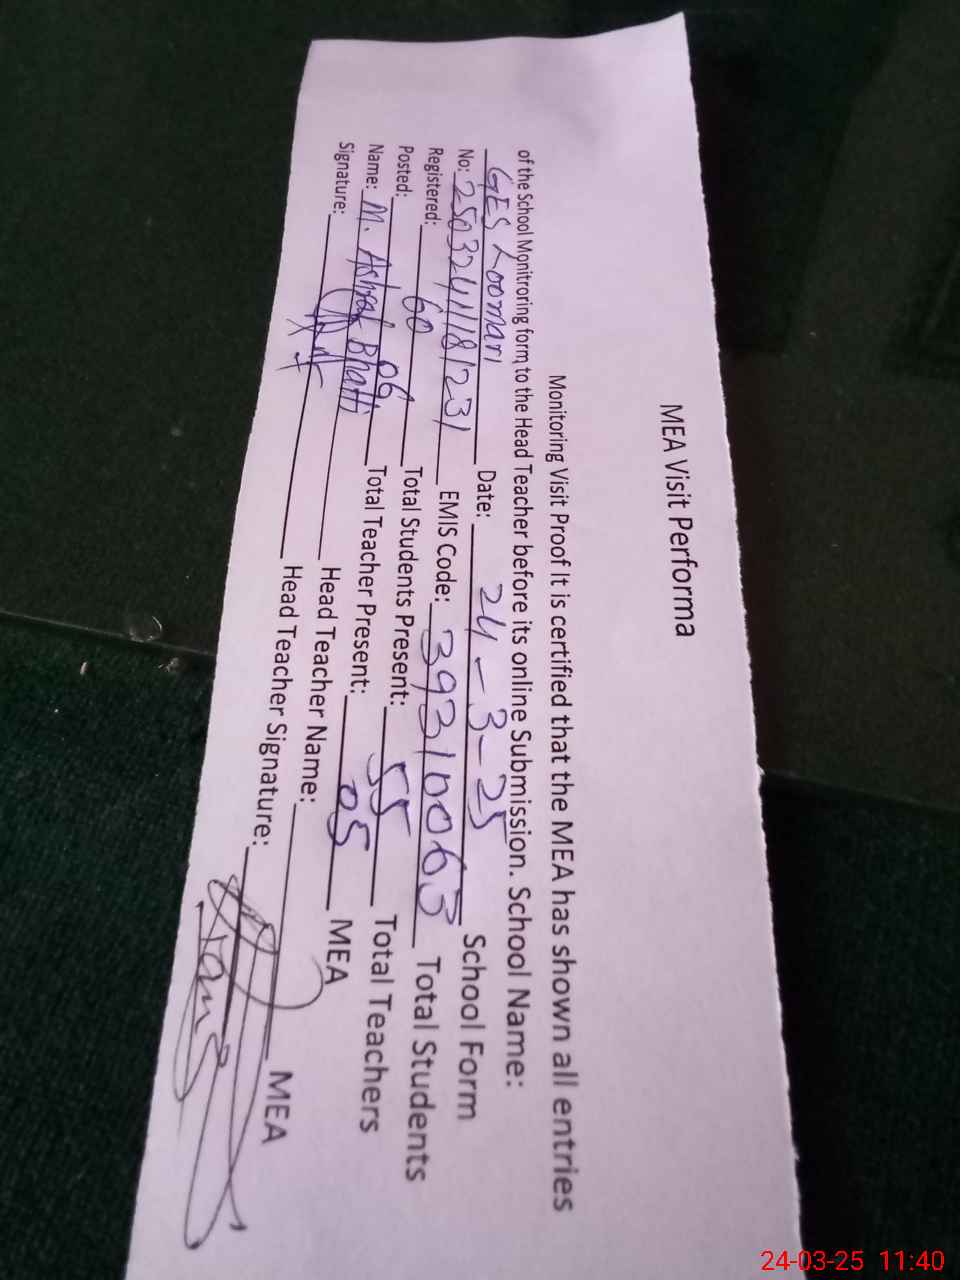 MEA Visit Performa
Monitoring Visit Proof It is certified that the MEA has shown all entries
of the School Monitroring form to the Head Teacher before its online Submission. School Name:
GES Loomari Date: 24-3-25 School Form
No: EMIS Code: 39310063 Total Students
Registered: 60 Total Students Present: 55 Total Teachers
Posted: 06 Total Teacher Present: 05 MEA
Name: M. Ashraf Bhatti Head Teacher Name: MEA
Signature: Head Teacher Signature:
24-03-25 11:40